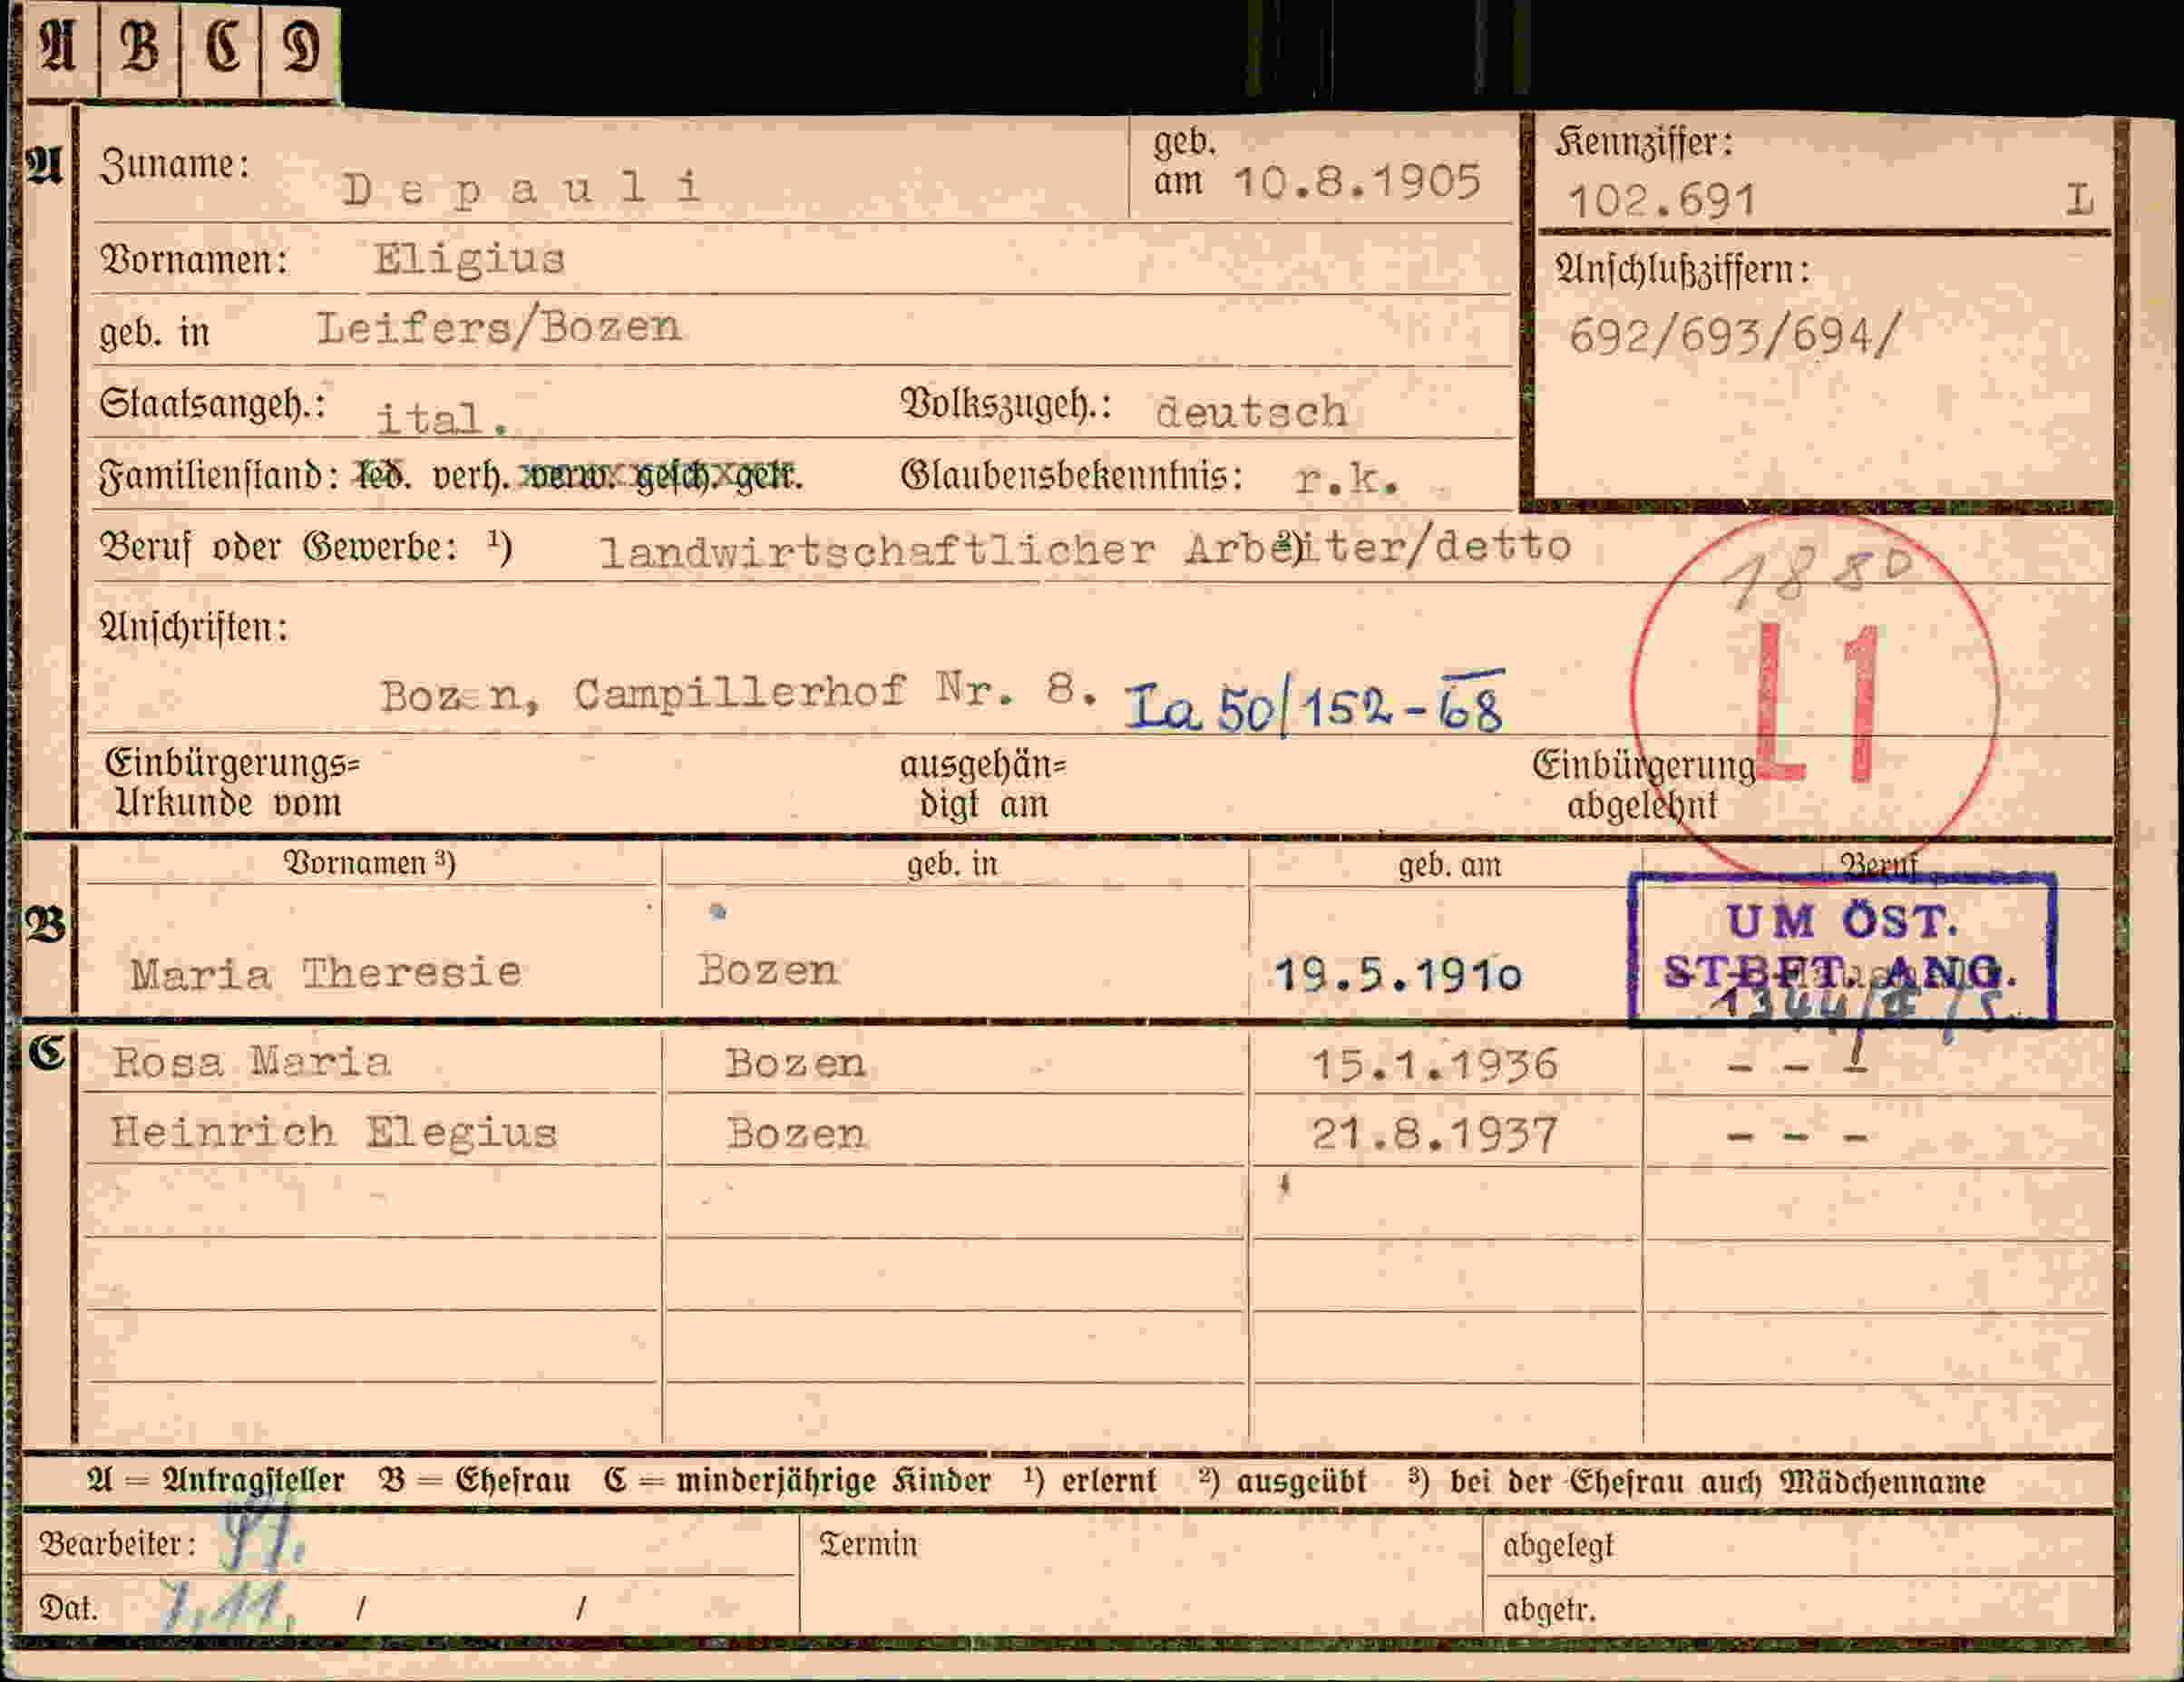 A B C D
A Zuname: Depauli geb. am 10.8.1905 Kennziffer: 102.691 L
Vornamen: Eligius Anschlußziffern:
geb. in Leifers/Bozen 692/693/694/
Staatsangeh.: ital. Volkszugeh.: deutsch
Familienstand: led. verh. verw. gesch. getr. Glaubensbekenntnis: r.k.
Beruf oder Gewerbe: ¹) landwirtschaftlicher Arbeiter/detto ²)
1880
L1
Anschriften:
Bozen, Campillerhof Nr. 8. Ia 50/152-68
Einbürgerungs= Urkunde vom ausgehän= digt am Einbürgerung abgelehnt
Vornamen ³) geb. in geb. am Beruf
UM ÖST.
B Maria Theresie Bozen 19.5.1910 ST.BFT. ANG.
C Rosa Maria Bozen 15.1.1936 - - -
Heinrich Elegius Bozen 21.8.1937 - - -
A = Antragsteller B = Ehefrau C = minderjährige Kinder ¹) erlernt ²) ausgeübt ³) bei der Ehefrau auch Mädchenname
Bearbeiter: Termin abgelegt
Dat. 7.11. / / abgetr.